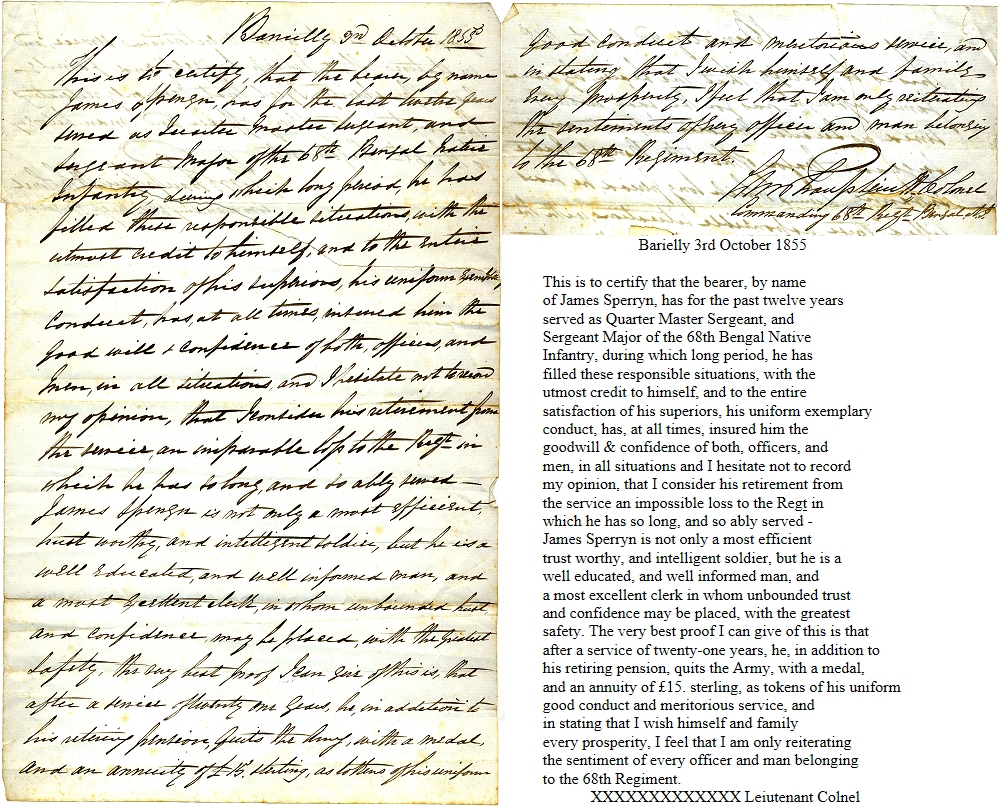 Barielly 3rd October 1855
This is to certify, that the bearer, by name
James Sperryn, has for the last twelve years
served as Quarter Master Sergeant, and
Sergeant Major of the 68th Bengal Native
Infantry, during which long period, he has
filled these responsible situations, with the
utmost credit to himself, and to the entire
satisfaction of his superiors, his uniform exemplary
conduct, has, at all times, insured him the
good will & confidence of both, officers, and
men, in all situations, and I hesitate not to record
my opinion, that I consider his retirement from
the service, an irreparable loss to the Regt in
which he has so long, and so ably served -
James Sperryn is not only a most efficient,
trust worthy, and intelligent soldier, but he is a
well educated, and well informed man, and
a most excellent clerk, in whom unbounded trust
and confidence, may be placed, with the greatest
safety, the very best proof I can give of this is, that
after a service of twenty one years, he, in addition to
his retiring pension, quits the Army, with a medal,
and an annuity of £15. sterling, as tokens of his uniform
good conduct and meritorious service, and
in stating that I wish himself, and family
every prosperity, I feel that I am only reiterating
the sentiments of every officer and man belonging
to the 68th Regiment.
Lt Colonel
Commanding 68th Regt Bengal N.I.
Barielly 3rd October 1855
This is to certify that the bearer, by name
of James Sperryn, has for the past twelve years
served as Quarter Master Sergeant, and
Sergeant Major of the 68th Bengal Native
Infantry, during which long period, he has
filled these responsible situations, with the
utmost credit to himself, and to the entire
satisfaction of his superiors, his uniform exemplary
conduct, has, at all times, insured him the
goodwill & confidence of both, officers, and
men, in all situations and I hesitate not to record
my opinion, that I consider his retirement from
the service an impossible loss to the Regt in
which he has so long, and so ably served -
James Sperryn is not only a most efficient
trust worthy, and intelligent soldier, but he is a
well educated, and well informed man, and
a most excellent clerk in whom unbounded trust
and confidence may be placed, with the greatest
safety. The very best proof I can give of this is that
after a service of twenty-one years, he, in addition to
his retiring pension, quits the Army, with a medal,
and an annuity of £15. sterling, as tokens of his uniform
good conduct and meritorious service, and
in stating that I wish himself and family
every prosperity, I feel that I am only reiterating
the sentiment of every officer and man belonging
to the 68th Regiment.
XXXXXXXXXXXXX Leiutenant Colnel